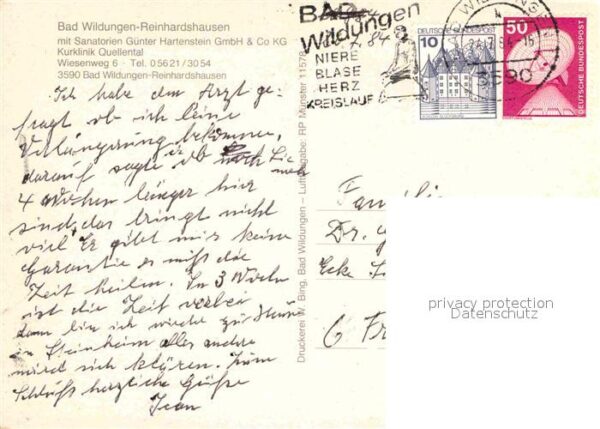 Bad Wildungen-Reinhardshausen
mit Sanatorien Günter Hartenstein GmbH & Co KG
Kurklinik Quellental
Wiesenweg 6 · Tel. 05621/3054
3590 Bad Wildungen-Reinhardshausen
Ich habe den Arzt ge-
fragt ob ich keine
Verlängerung bekomme,
darauf sagte er ob Sie noch
4 Wochen länger hier
sind, das bringt nicht
viel Er gibt mir keine
Garantie es muß die
Zeit heilen. In 3 Wochen
ist die Zeit vorbei
dann bin ich wieder zu Hause
in Steinheim alles andere
wird sich klären. Zum
Schluß herzliche Grüße
Druckerei W. Bing, Bad Wildungen – Luftfreigabe: RP Münster
BAD
Wildungen
NIERE
BLASE
HERZ
KREISLAUF
3590
10
DEUTSCHE BUNDESPOST
50
DEUTSCHE BUNDESPOST
Familie
Dr.
Ecke
6 Fr
privacy protection
Datenschutz